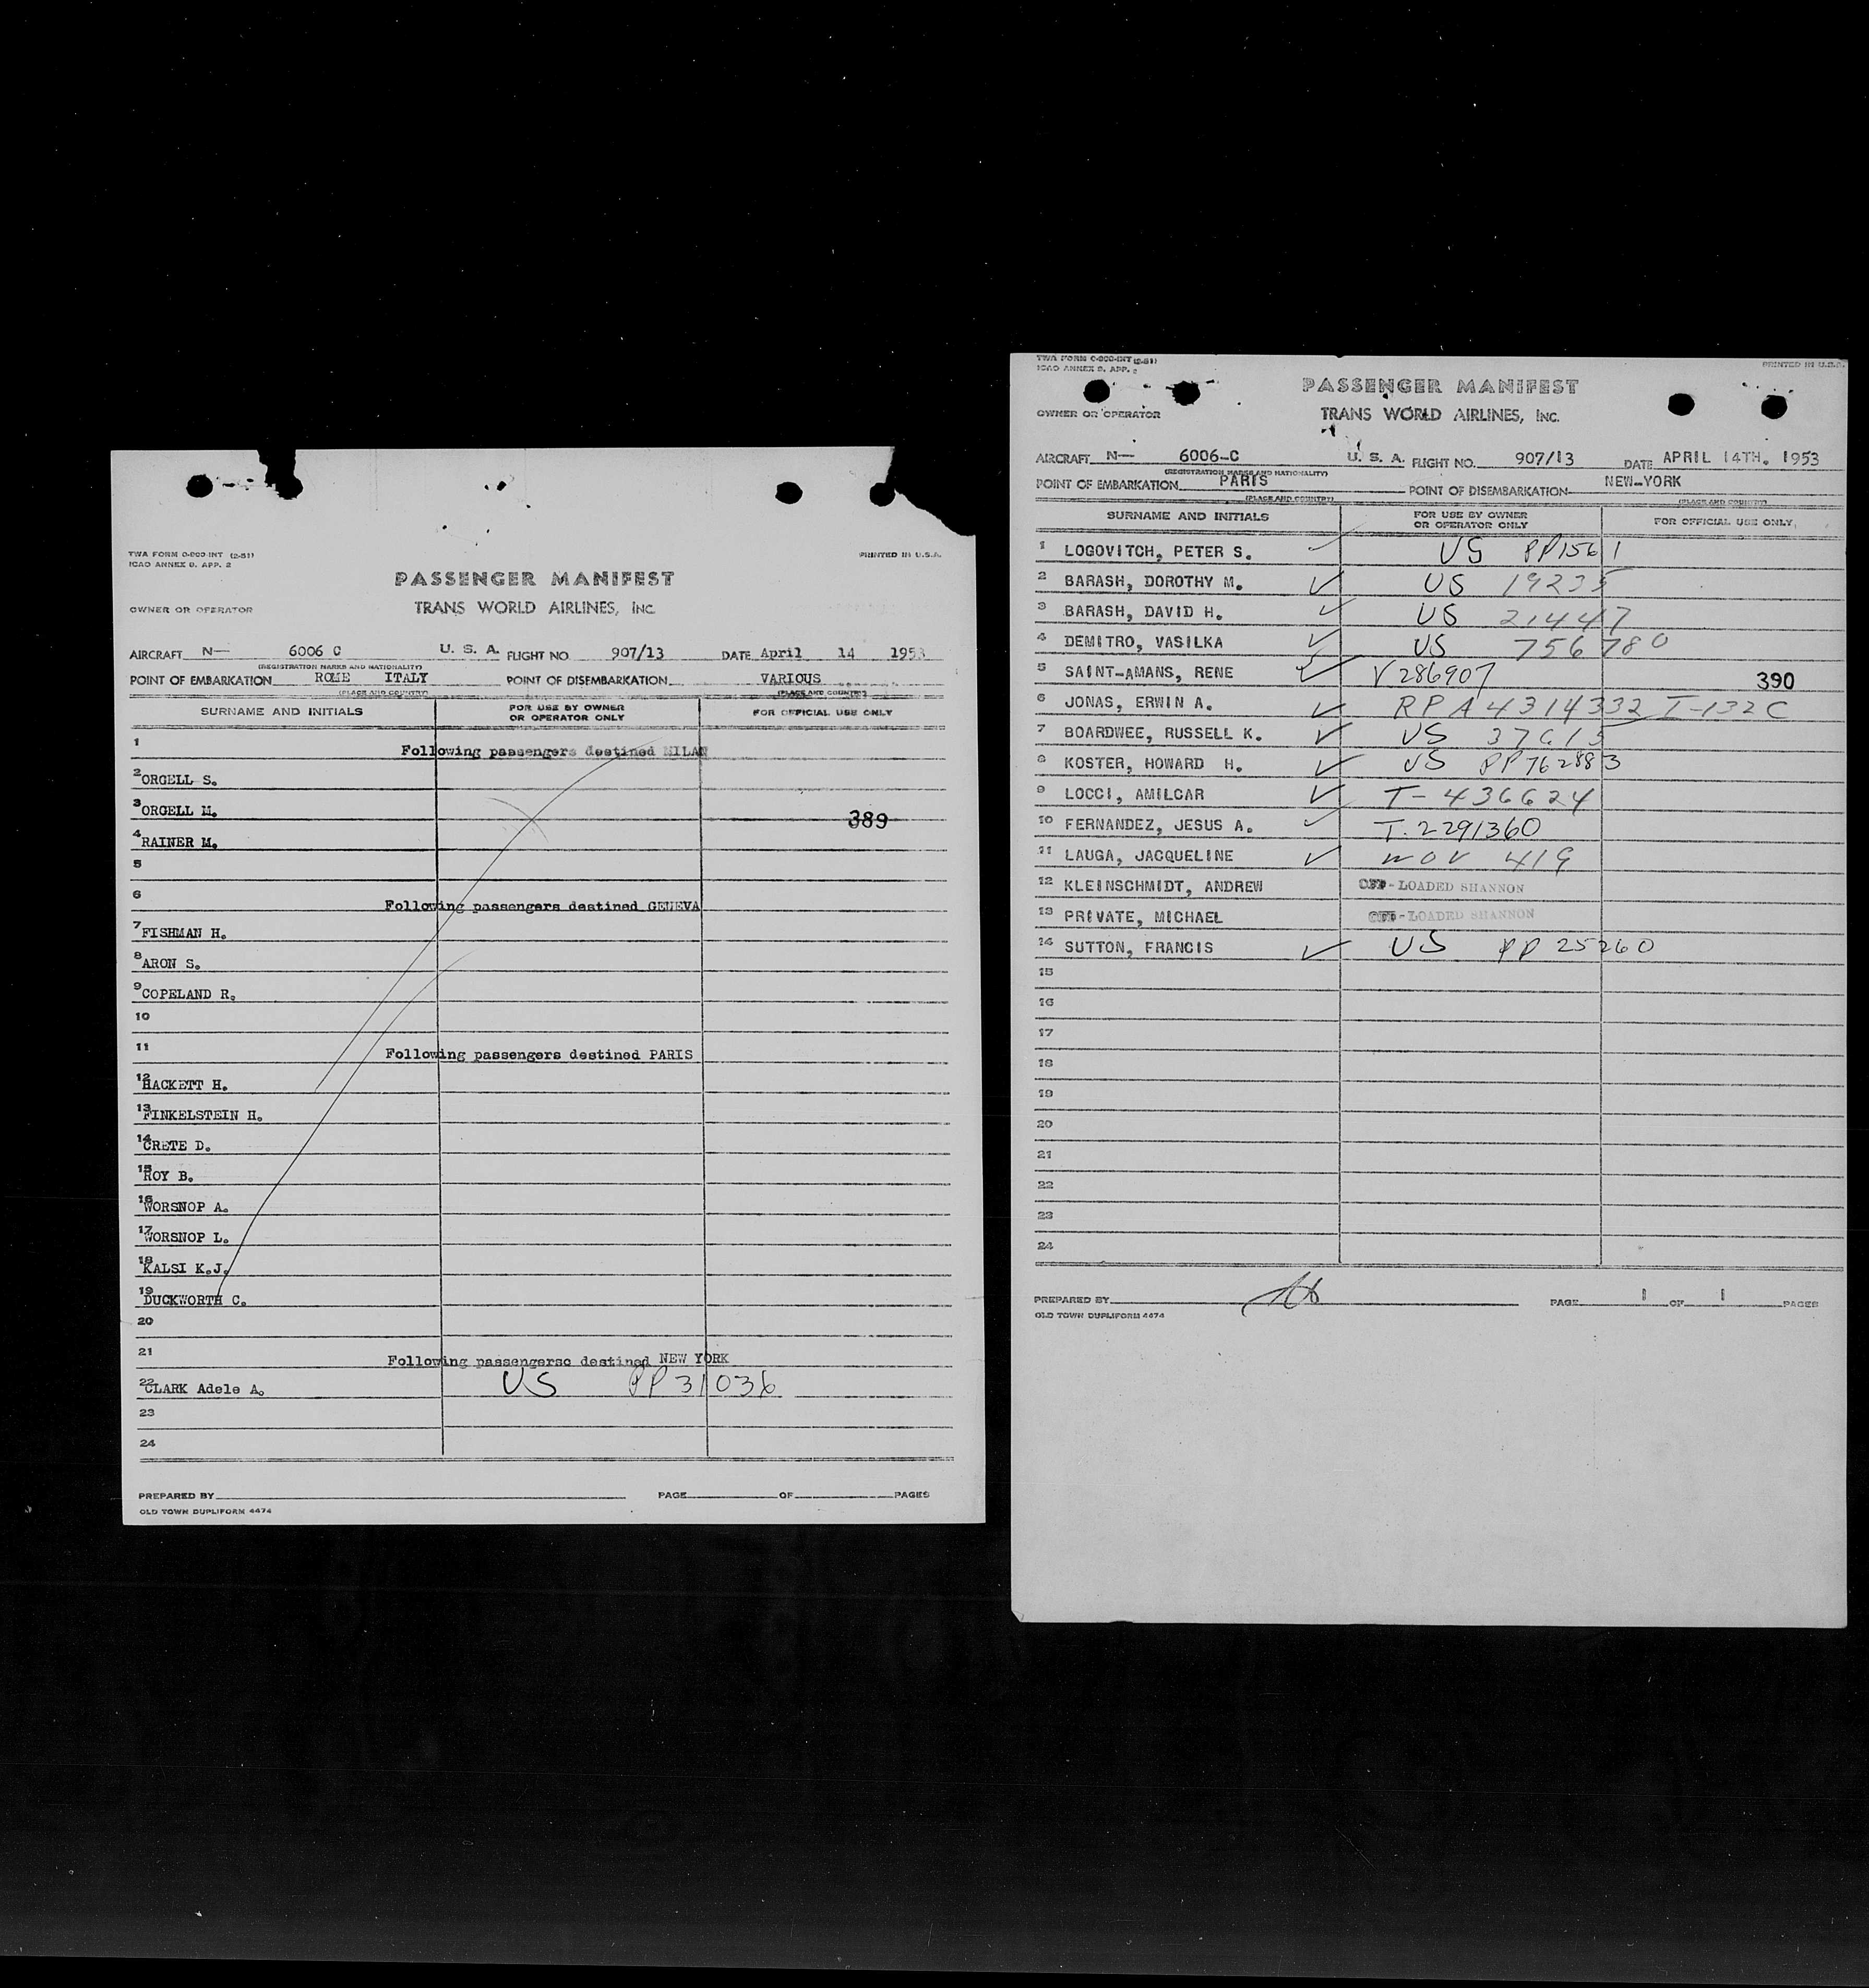 TWA FORM O-800-INT (2-51)
ICAO ANNEX 9. APP. 2
PRINTED IN U.S.A.
PASSENGER MANIFEST
OWNER OR OPERATOR
TRANS WORLD AIRLINES, INC.
AIRCRAFT N— 6006 C U. S. A. FLIGHT NO. 907/13 DATE April 14 1953
(REGISTRATION MARKS AND NATIONALITY)
POINT OF EMBARKATION ROME ITALY POINT OF DISEMBARKATION VARIOUS
(PLACE AND COUNTRY) (PLACE AND COUNTRY)
SURNAME AND INITIALS FOR USE BY OWNER OR OPERATOR ONLY FOR OFFICIAL USE ONLY
1 Following passengers destined MILAN
2 ORGELL S.
3 ORGELL M. 389
4 RAINER M.
5
6 Following passengers destined GENEVA
7 FISHMAN H.
8 ARON S.
9 COPELAND R.
10
11 Following passengers destined PARIS
12 HACKETT H.
13 FINKELSTEIN H.
14 CRETE D.
15 ROY B.
16 WORSNOP A.
17 WORSNOP L.
18 KALSI K.J.
19 DUCKWORTH C.
20
21 Following passengerso destined NEW YORK
22 CLARK Adele A. US PP 31036
23
24
PREPARED BY PAGE OF PAGES
OLD TOWN DUPLIFORM 4474
TWA FORM O-800-INT (2-51)
ICAO ANNEX 9. APP. 2
PRINTED IN U.S.A.
PASSENGER MANIFEST
OWNER OR OPERATOR
TRANS WORLD AIRLINES, INC.
AIRCRAFT N— 6006-C U. S. A. FLIGHT NO. 907/13 DATE APRIL 14TH. 1953
(REGISTRATION MARKS AND NATIONALITY)
POINT OF EMBARKATION PARIS POINT OF DISEMBARKATION NEW-YORK
(PLACE AND COUNTRY) (PLACE AND COUNTRY)
SURNAME AND INITIALS FOR USE BY OWNER OR OPERATOR ONLY FOR OFFICIAL USE ONLY
1 LOGOVITCH, PETER S. US PP 1561
2 BARASH, DOROTHY M. US 19235
3 BARASH, DAVID H. US 21447
4 DEMITRO, VASILKA US 756780
5 SAINT-AMANS, RENE V 286907 390
6 JONAS, ERWIN A. RP A 4314332 I-132 C
7 BOARDWEE, RUSSELL K. US 37615
8 KOSTER, HOWARD H. US PP 762883
9 LOCCI, AMILCAR T- 436624
10 FERNANDEZ, JESUS A. T. 2291360
11 LAUGA, JACQUELINE 419
12 KLEINSCHMIDT, ANDREW OFF-LOADED SHANNON
13 PRIVATE, MICHAEL OFF-LOADED SHANNON
14 SUTTON, FRANCIS US PP 25260
15
16
17
18
19
20
21
22
23
24
PREPARED BY PAGE 1 OF 1 PAGES
OLD TOWN DUPLIFORM 4474